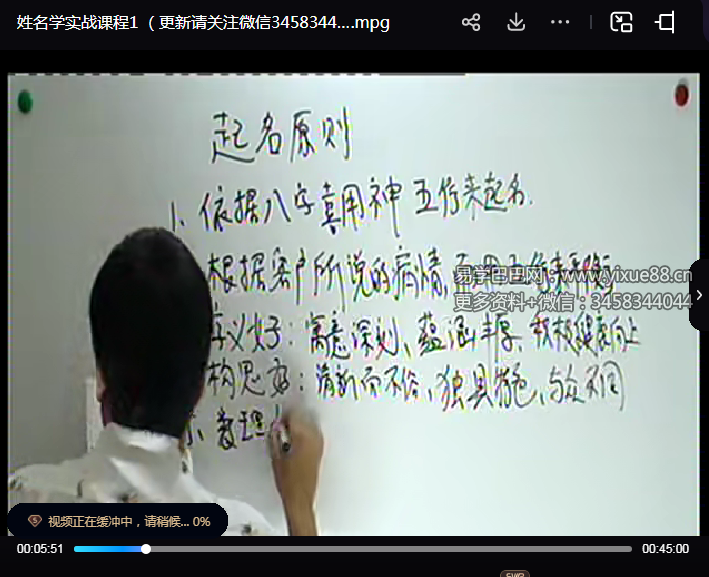 姓名学实战课程1 （更新请关注微信3458344....mpg
起名原则
1、依据八字真用神五行来起名.
根据客户所说的病情,
易学巴巴网 www.yixue88.cn
更多资料+微信：3458344044
字义好：寓意深刻、蕴涵丰厚、积极健康向上
构思好：清新而不俗、独具特色、与众不同
、数理
视频正在缓冲中，请稍候... 0%
00:05:51
00:45:00
SVIP